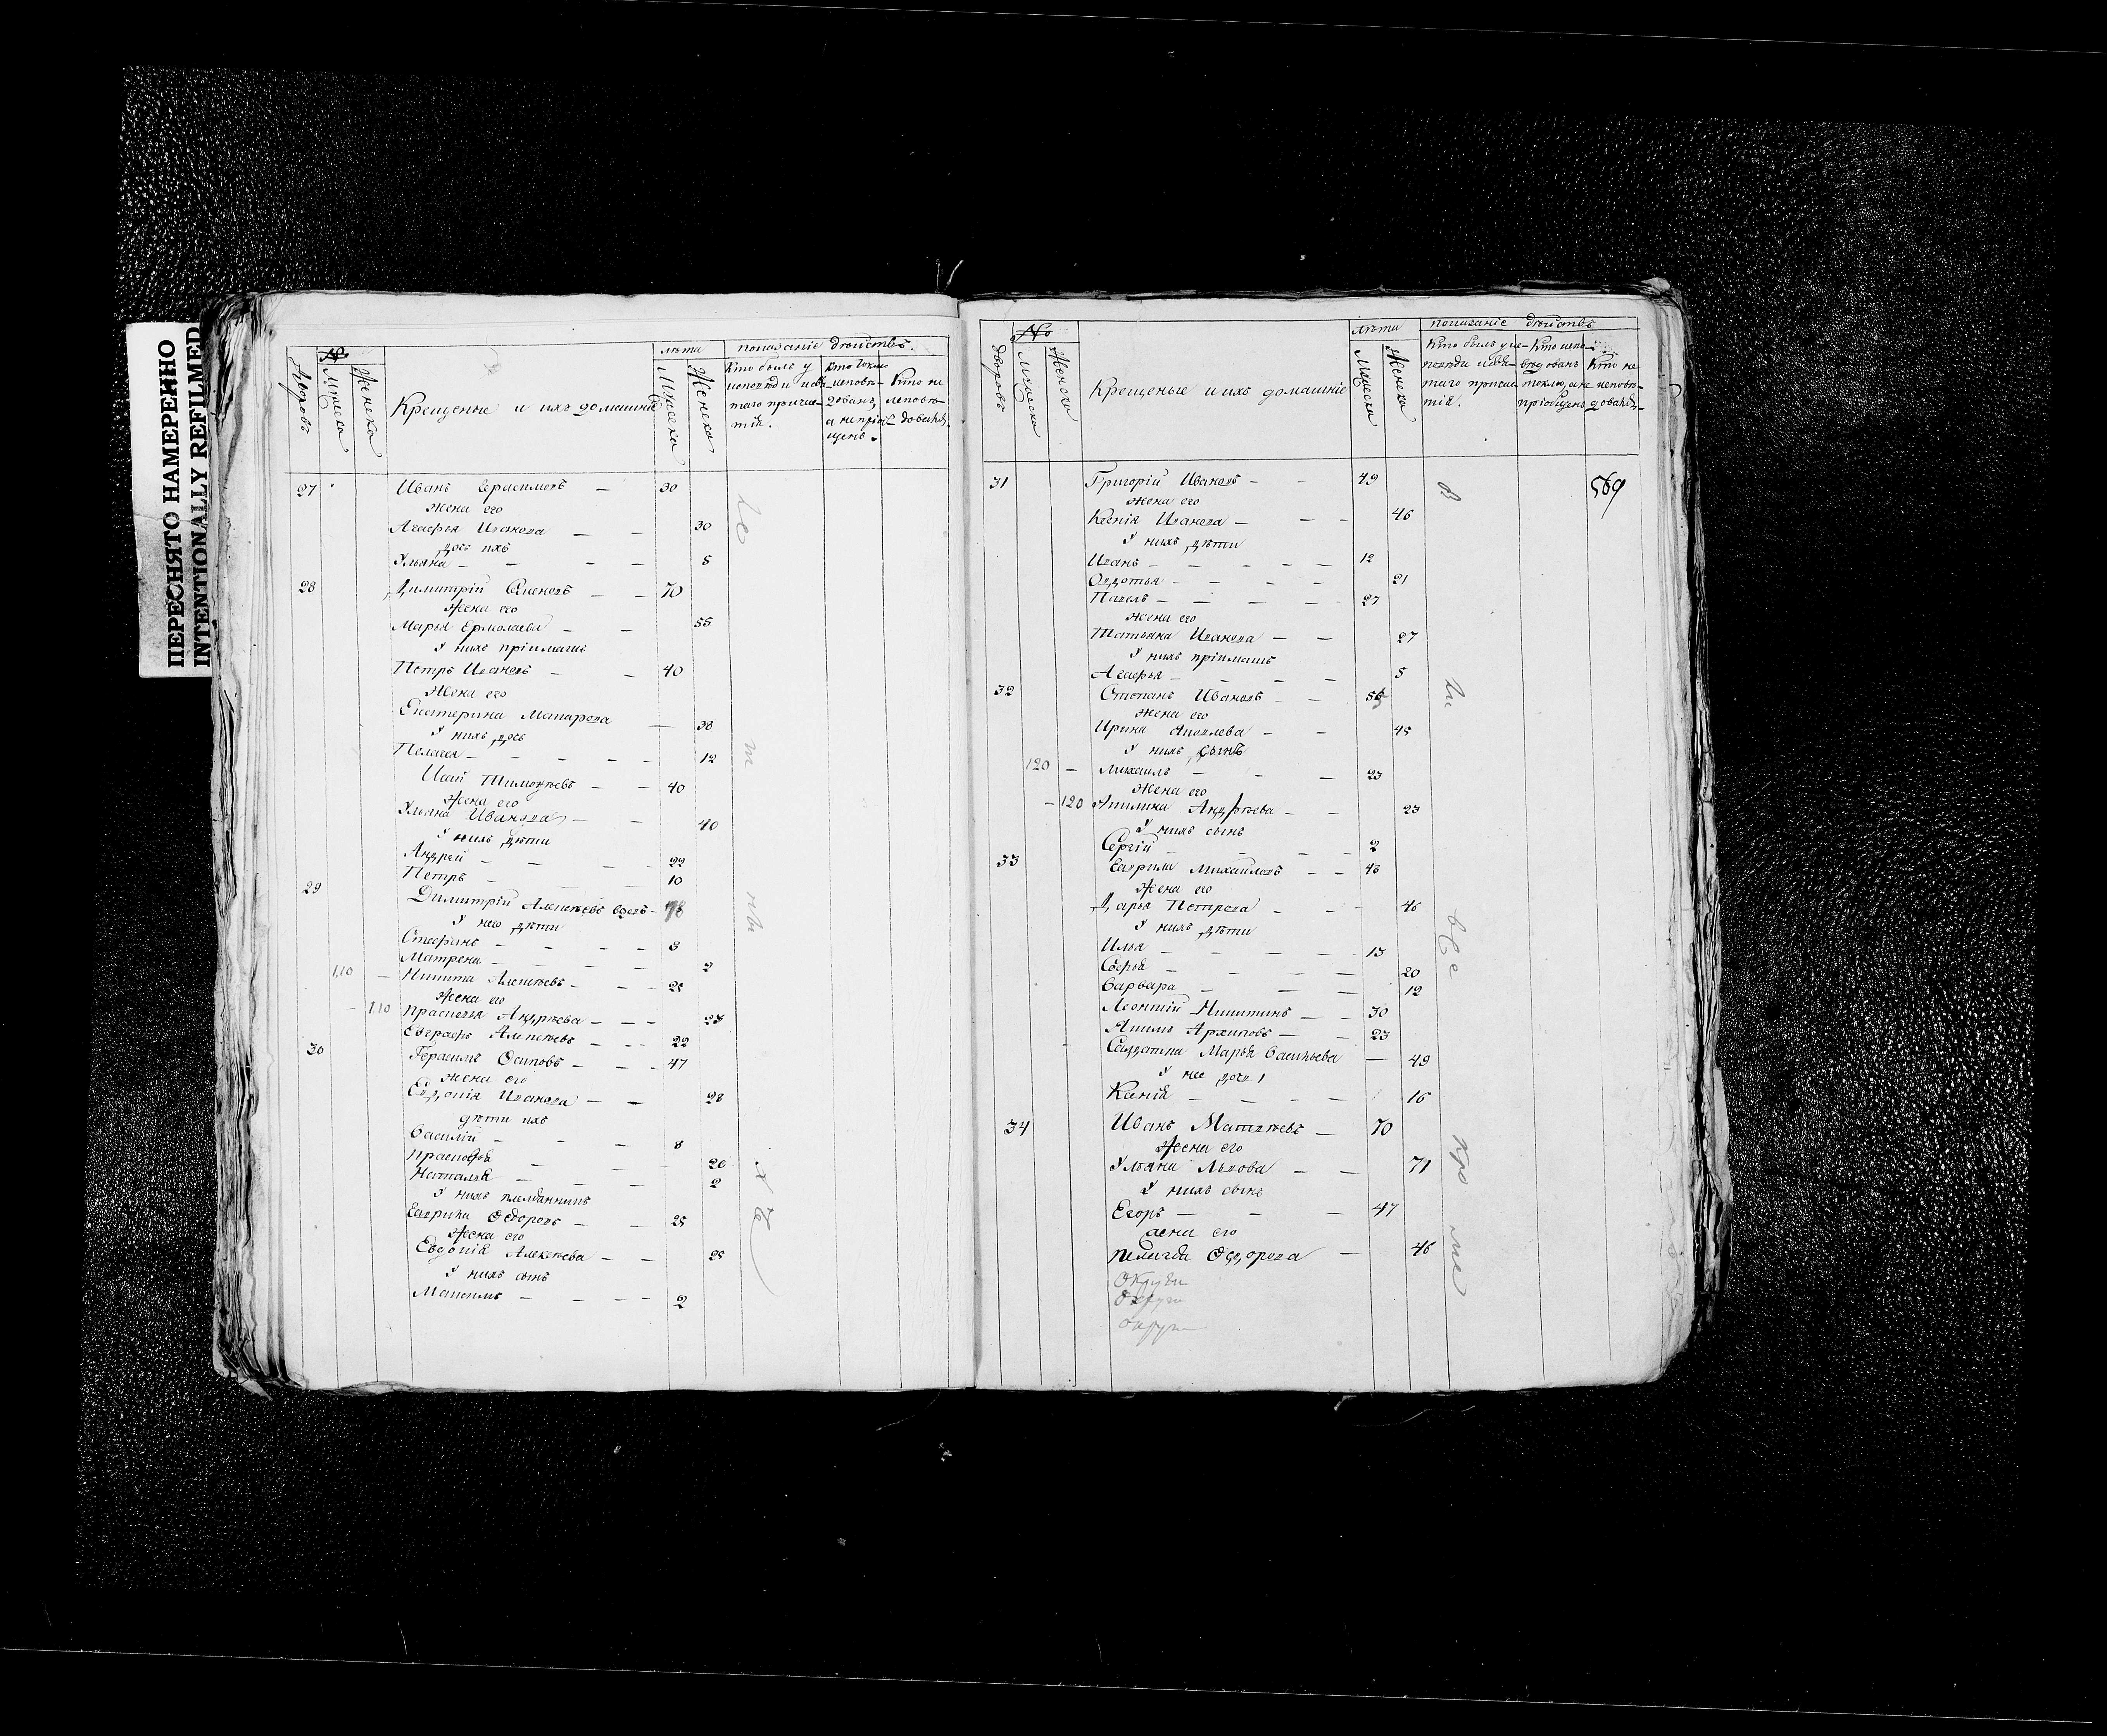 ПЕРЕСНЯТО НАМЕРЕННО
INTENTIONALLY REFILMED
№ лѣта показаніе дѣйствъ.
Дворовъ Мужеска Женска Крещеные и ихъ домашніе Мужеска Женска Кто былъ у исповѣди и свя- таго прича- тія. кто токмо исповѣ- дованъ, а не пріоб- щенъ. Кто не исповѣ- дованъ.
27 Иванъ Герасимовъ — 30
жена его
Агафья Иванова — — 30
дочь ихъ
Ульяна — — — — 5
28 Димитрій — — 70
Жена его
Марья Ермолаева — — 55
У нихъ пріимашъ
Петръ Ивановъ — — 40
Жена его
Екатерина Макарова — 38
У нихъ дочь
Пелагея — — — — — 12
Исай Тимоѳѣевъ — — 40
Жена его
Ульяна Иванова — — 40
У нихъ дѣти
Андрей — — — — 22
Петръ — — — 10
29 Димитрій Алексѣевъ вдовъ — 78
У него дѣти
Стефанъ — — — — 8
Матрена — — — — 2
110 — Никита Алексѣевъ — — — 25
Жена его
— 110 Прасковья Андрѣева — — —
Евграфъ Алексѣевъ — — — 22
30 Герасимъ Осиповъ — — — 47
жена его
Евдокія Иванова — — 28
дѣти ихъ
Василій — — — 8
Прасковья — — 20
Наталья — — — 2
У нихъ племянникъ
Гаврила Ѳедоровъ — — — 25
Жена его
Евдокія Алексѣева — — 25
У нихъ сынъ
Максимъ — — — — 2
№ лѣта показаніе дѣйствъ
дворовъ Мужеска Женска Крещеные и ихъ домашніе Мужеска Женска Кто былъ у ис- повѣди и свя- таго прича- тія. Кто испо- вѣдованъ токмо, а не пріобщенъ Кто не исповѣ- дованъ.
31 Григорій Ивановъ — — 49 569
жена его
Ксенія Иванова — — — 46
У нихъ дѣти
Иванъ — — — — — 12
Авдотья — — — — 21
Павелъ — — — — — 27
жена его
Татьяна Иванова — — 27
У нихъ пріимашъ
Агафья — — — — 5
32 Степанъ Ивановъ — —
жена его
Ирина Яковлева — — 45
У нихъ сынъ
120 — Михаилъ — — — 23
Жена его
— 120 Акилина Андрѣева — — 23
У нихъ сынъ
Сергій — — — — 2
33 Гаврила Михайловъ — — 43
Жена его
Дарья Петрова — — — 46
У нихъ дѣти
Илья — — — — — 13
Софья — — — — 20
Варвара — — — 12
Леонтій Никитинъ — — 30
Акимъ Архиповъ — — 23
Солдатка Марья Васильева — 49
У нее дочь
Ксенія — — — — 16
34 Иванъ Матвѣевъ — 70
Жена его
Ульяна Львова — — 71
У нихъ сынъ
Егоръ — — — 47
жена его
Пелагѣя Ѳедорова — 46
Округи
Округи